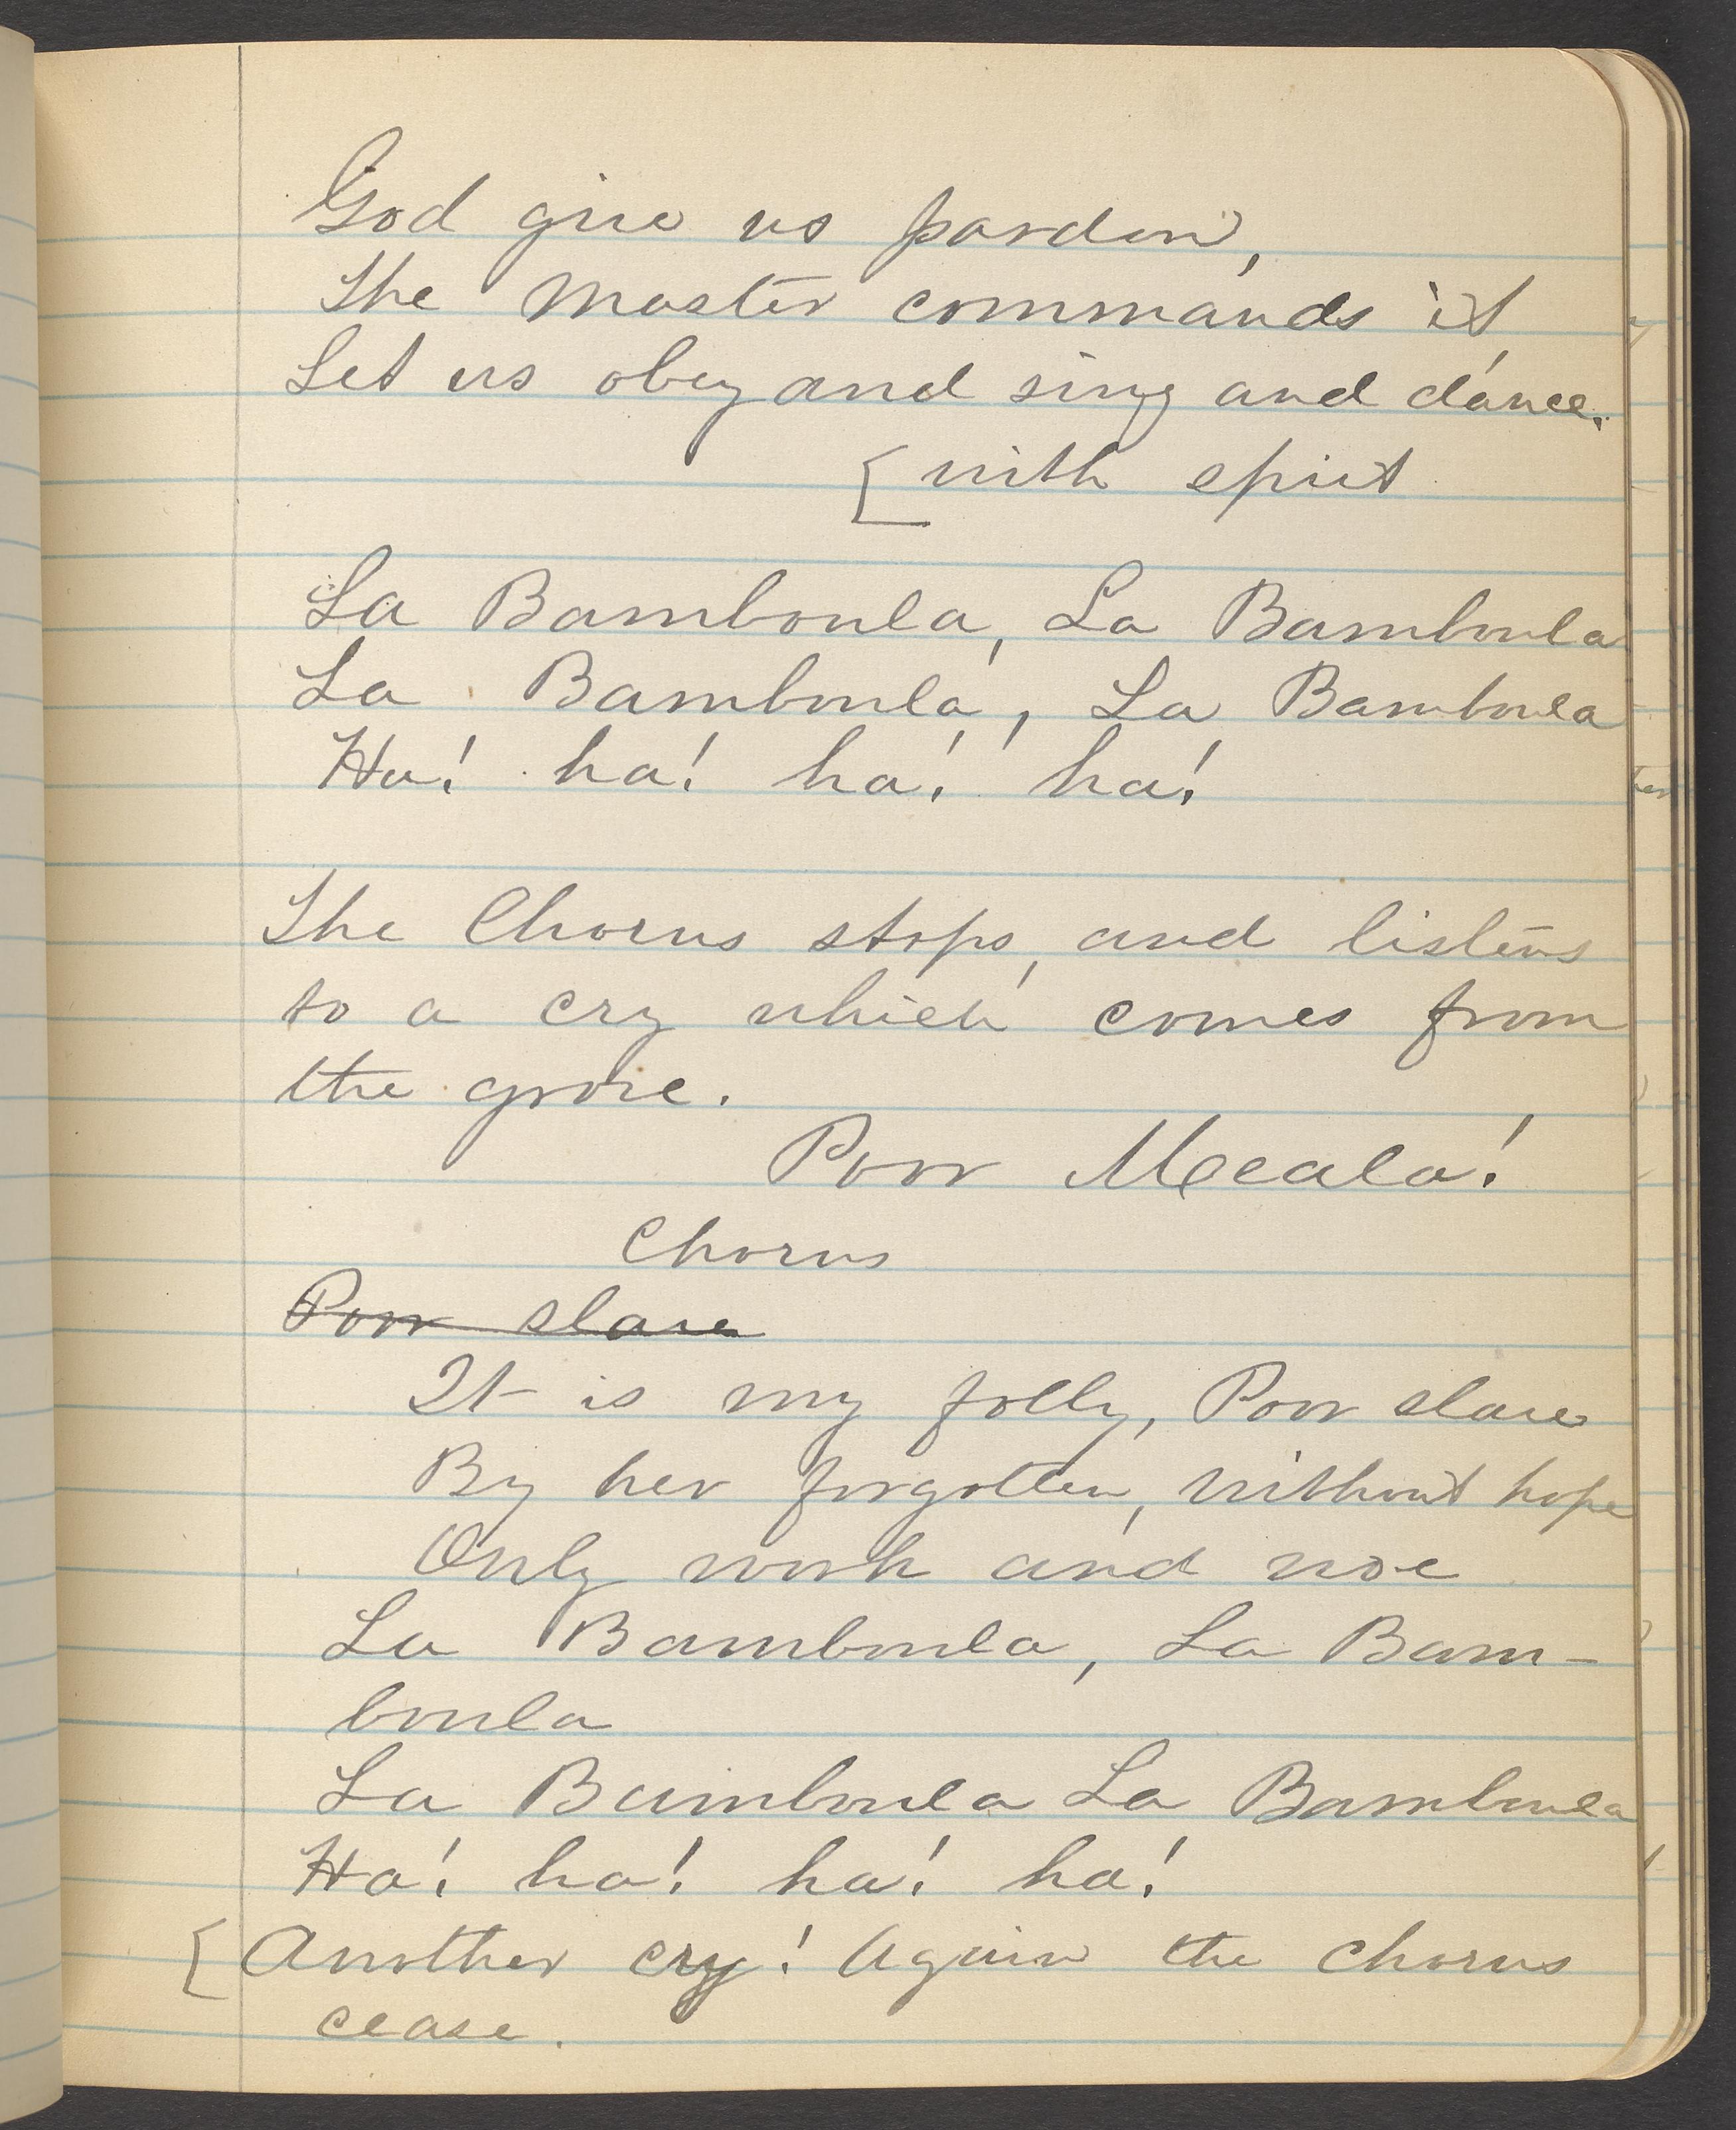 God give us pardon,
The Master commands it,
Let us obey and sing and dance.
[with spirit
La Bamboula, La Bamboula
La Bamboula, La Bamboula
Ha! ha! ha! ha!
The Chorus stops, and listens
to a cry which comes from
the grove.
Poor Mecala!
Chorus
Poor slave
It is my folly, Poor slave
By her forgotten, without hope
Only work and woe
La Bamboula, La Bam-
boula
La Bamboula La Bamboula
Ha! ha! ha! ha!
[Another cry! Again the chorus
cease.